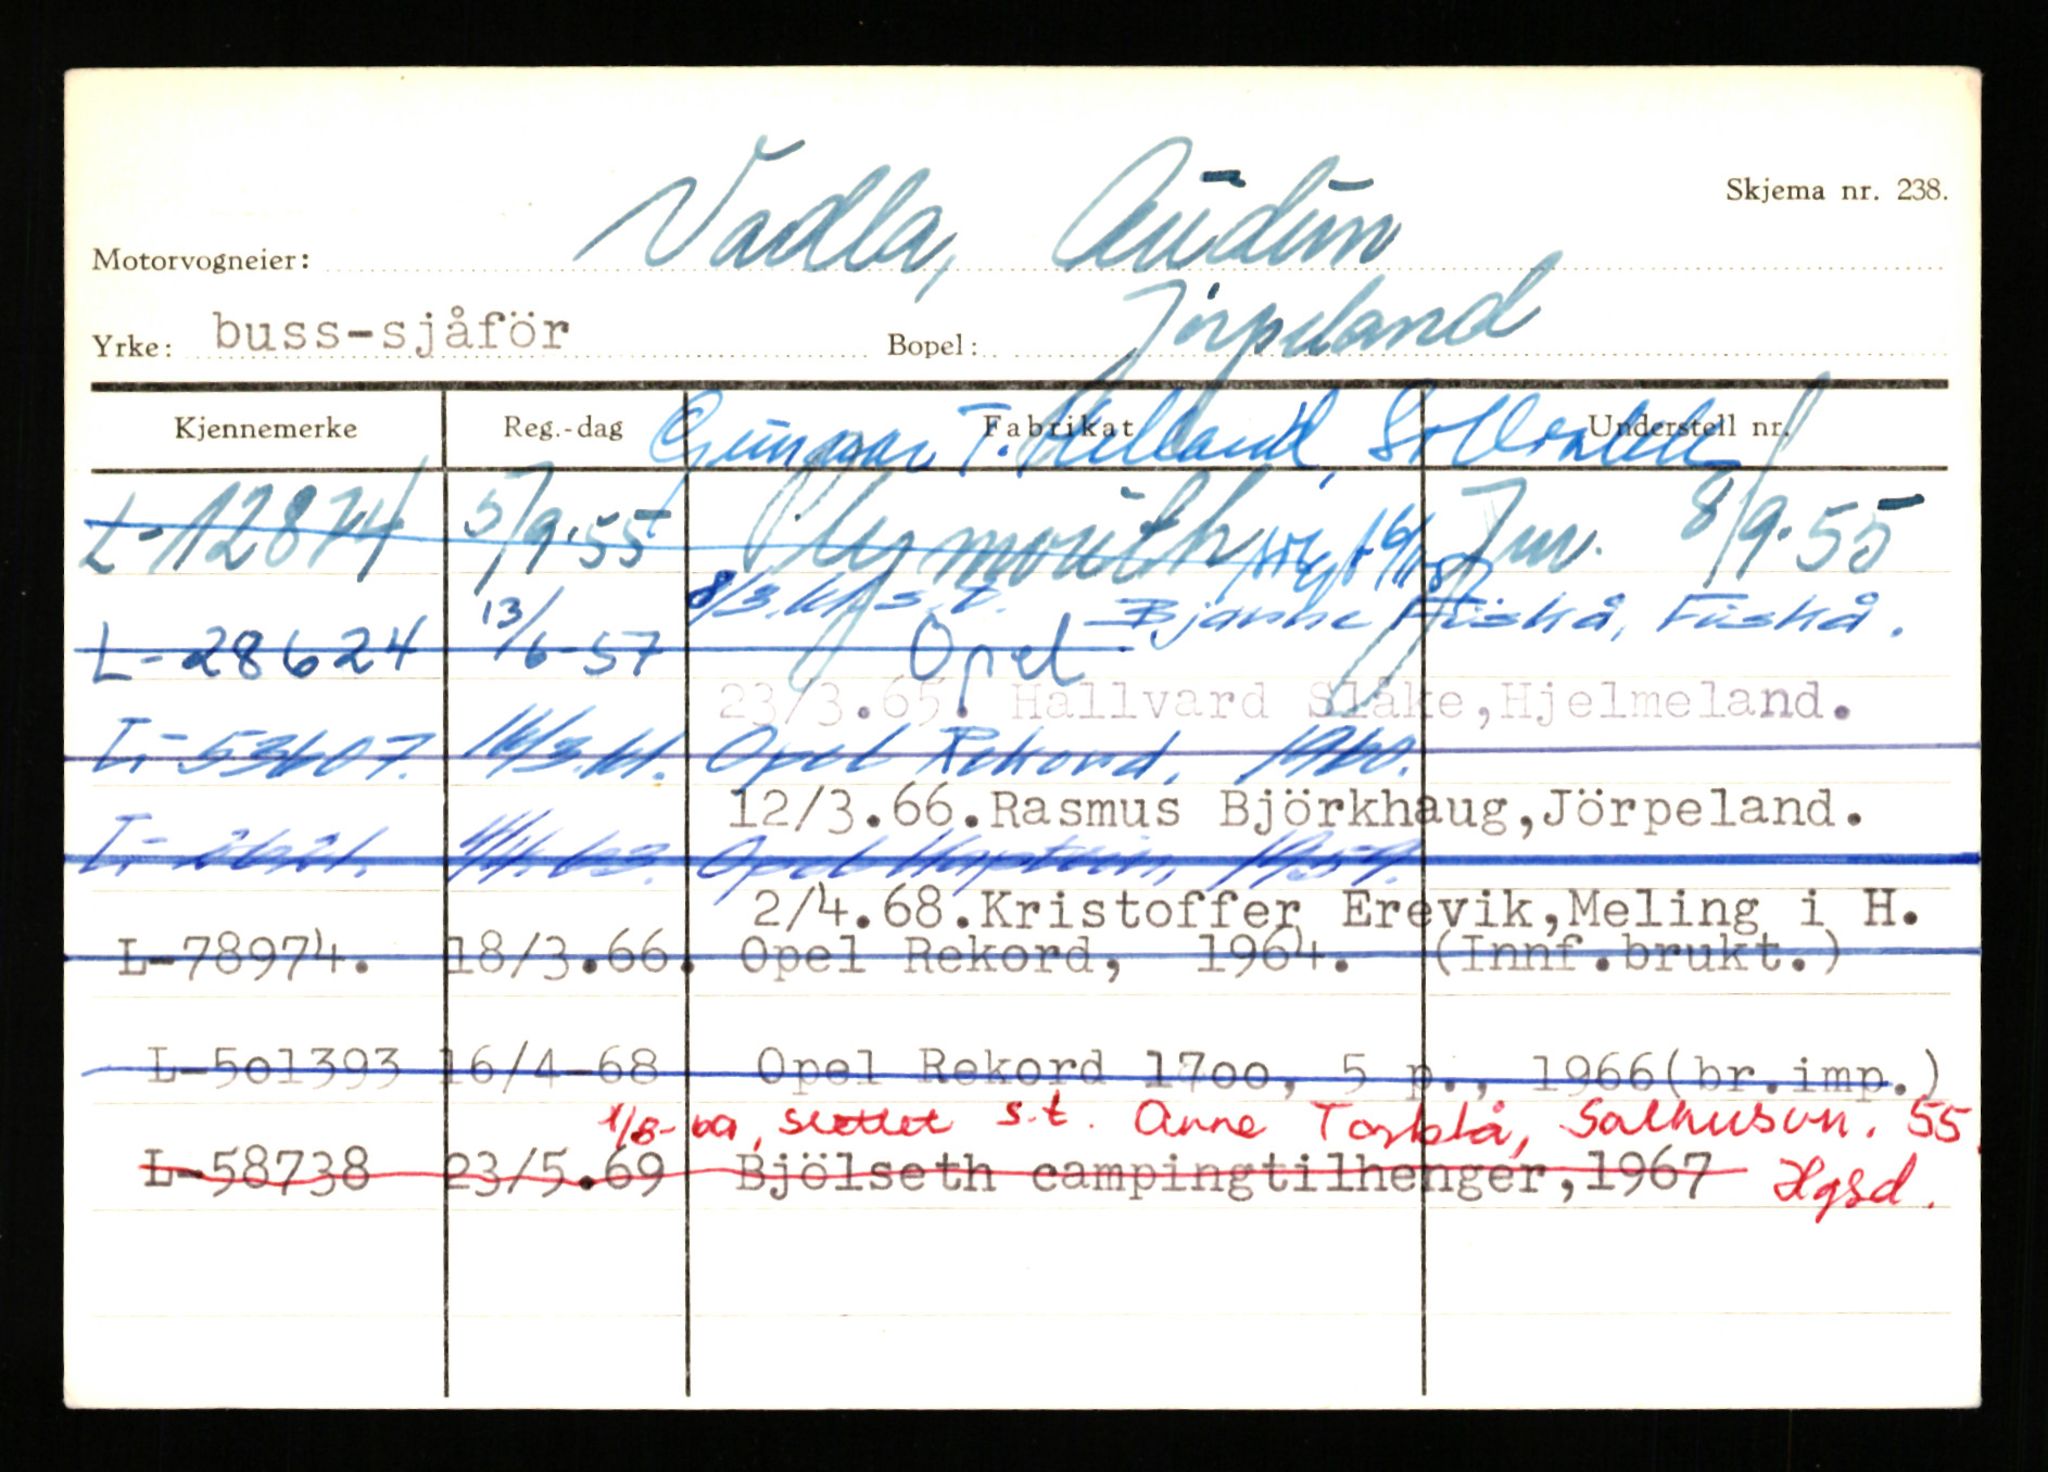 Skjema nr. 238.
Motorvogneier: Vadla, Audun
Yrke: buss-sjåför Bopel: Jörpeland
Kjennemerke Reg.-dag Fabrikat Understell nr.
Gunnar T. Helland,
L-12874 5/9.55 Plymouth 8/9.55
8/3.61 s.t. Bjarne Fiskå, Fiskå.
L-28624 13/6-57 Opel
23/3.65. Hallvard Slåke,Hjelmeland.
L-53607. 16/3.61. Opel Rekord, 1960.
12/3.66.Rasmus Björkhaug,Jörpeland.
Opel Kaptein, 1959.
2/4.68.Kristoffer Erevik,Meling i H.
L-78974. 18/3.66. Opel Rekord, 1964. (Innf.brukt.)
L-501393 16/4-68 Opel Rekord 1700, 5 p., 1966(br.imp.)
1/8-69, slettet s.t. Anne Torblå, Salhusvn. 55
L-58738 23/5.69 Bjölseth campingtilhenger,1967 Hgsd.